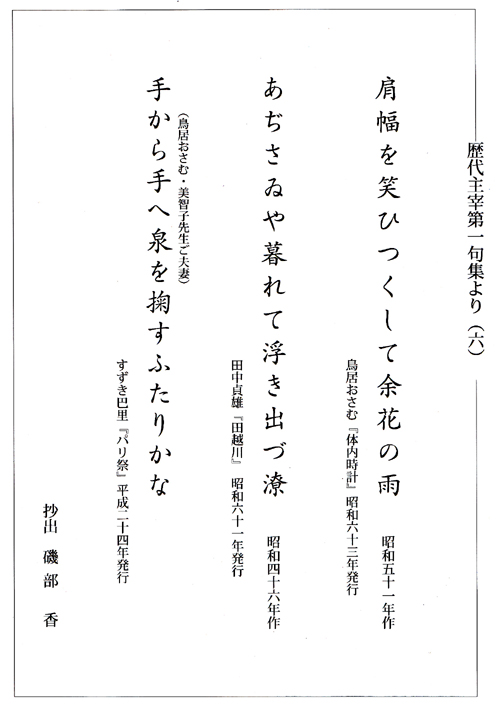 歴代主宰第一句集より（六）
肩幅を笑ひつくして余花の雨　昭和五十一年作
鳥居おさむ『体内時計』昭和六十三年発行
あぢさゐや暮れて浮き出づ潦　昭和四十六年作
田中貞雄『田越川』昭和六十一年発行
（鳥居おさむ・美智子先生ご夫妻）
手から手へ泉を掬すふたりかな
すずき巴里『パリ祭』平成二十四年発行
抄出　磯部　香